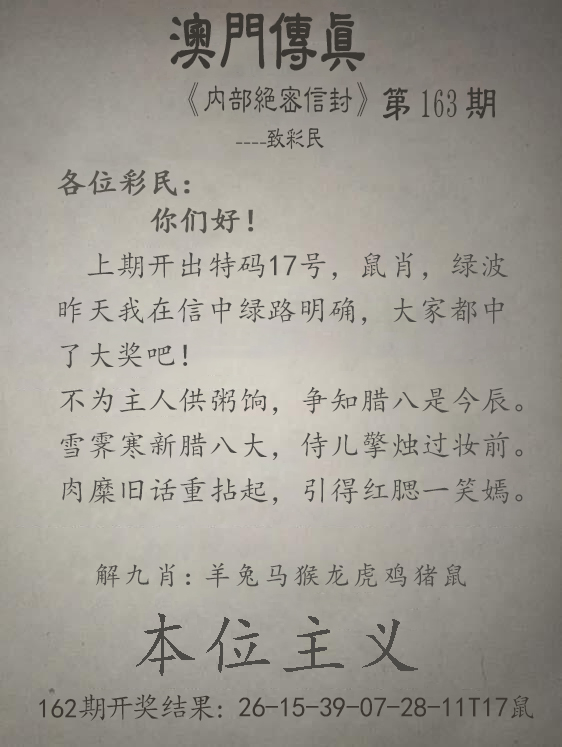 澳門傳真
《內部絕密信封》第163期
----致彩民
各位彩民：
你们好！
上期开出特码17号，鼠肖，绿波
昨天我在信中绿路明确，大家都中
了大奖吧！
不为主人供粥饷，争知腊八是今辰。
雪霁寒新腊八大，侍儿擎烛过妆前。
肉糜旧话重拈起，引得红腮一笑嫣。
解九肖：羊兔马猴龙虎鸡猪鼠
本位主义
162期开奖结果：26-15-39-07-28-11T17鼠